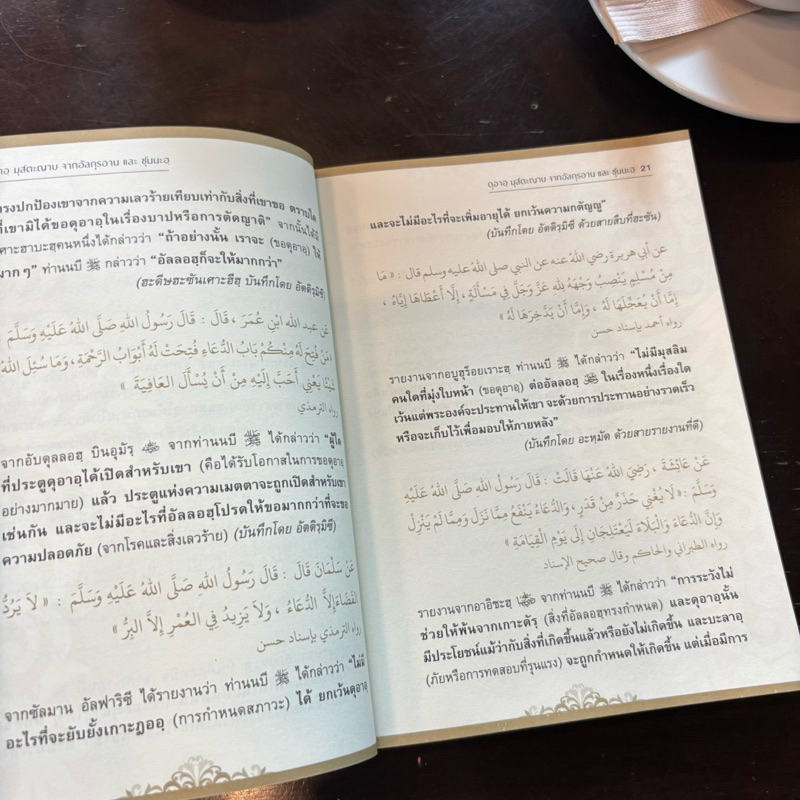 อาอฺ มุสตะญาบ จากอัลกุรอาน และ ซุนนะฮฺ
รงปกป้องเขาจากความเลวร้ายเทียบเท่ากับสิ่งที่เขาขอ ตราบใด
ที่เขามิได้ขอดุอาอฺในเรื่องบาปหรือการตัดญาติ" จากนั้นได้มี
ศอฮาบะฮฺคนหนึ่งได้กล่าวว่า "ถ้าอย่างนั้น เราจะ (ขอดุอาอฺ) ให้
มาก ๆ" ท่านนบี ﷺ กล่าวว่า "อัลลอฮฺก็จะให้มากกว่า"
(ฮะดีษฮะซันเศาะฮีฮฺ บันทึกโดย อัตติรฺมิซี)
عَن عبد الله ابْنِ عُمَرَ ، قَالَ : قَالَ رَسُولُ اللهِ صَلَّى اللهُ عَلَيْهِ وَسَلَّمَ
مَنْ فُتِحَ لَهُ مِنْكُمْ بَابُ الدُّعَاءِ فُتِحَتْ لَهُ أَبْوَابُ الرَّحْمَةِ، وَمَا سُئِلَ اللهُ
شَيْئًا يَعْنِي أَحَبَّ إِلَيْهِ مِنْ أَنْ يُسْأَلَ الْعَافِيَةَ »
رواه الترمذي
จากอับดุลลอฮฺ บินอุมัรฺ จากท่านนบี ﷺ ได้กล่าวว่า "ผู้ใด
ที่ประตูดุอาอฺได้เปิดสำหรับเขา (คือได้รับโอกาสในการขอดุอาอฺ
อย่างมากมาย) แล้ว ประตูแห่งความเมตตาจะถูกเปิดสำหรับเขา
เช่นกัน และจะไม่มีอะไรที่อัลลอฮฺโปรดให้ขอมากกว่าที่จะขอ
ความปลอดภัย (จากโรคและสิ่งเลวร้าย) (บันทึกโดย อัตติรฺมิซี)
عَنْ سَلْمَانَ قَالَ : قَالَ رَسُولُ اللهِ صَلَّى اللهُ عَلَيْهِ وَسَلَّمَ : « لَا يَرُدُّ
الْقَضَاءَ إِلَّا الدُّعَاءُ ، وَلَا يَزِيدُ فِي الْعُمْرِ إِلَّا الْبِرُّ »
رواه الترمذي بإسناد حسن
จากซัลมาน อัลฟาริซี ได้รายงานว่า ท่านนบี ﷺ ได้กล่าวว่า "ไม่มี
อะไรที่จะยับยั้งเกาะฎออฺ (การกำหนดสภาวะ) ได้ ยกเว้นดุอาอฺ
ดุอาอฺ มุสตะญาบ จากอัลกุรอาน และ ซุนนะฮฺ 21
และจะไม่มีอะไรที่จะเพิ่มอายุได้ ยกเว้นความกตัญญู"
(บันทึกโดย อัตติรฺมิซี ด้วยสายสืบที่ฮะซัน)
عَن أبي هريرة رضي اللهُ عنه عن النبي صلى اللهُ عليه وسلم قال : « مَا
مِنْ مُسْلِمٍ يَنْصِبُ وَجْهَهُ لِلَّهِ عَزَّ وَجَلَّ فِي مَسْأَلَةٍ ، إِلَّا أَعْطَاهَا إِيَّاهُ ،
إِمَّا أَنْ يُعَجِّلَهَا لَهُ ، وَإِمَّا أَنْ يَدَّخِرَهَا لَهُ »
رواه أحمد بإسناد حسن
รายงานจากอบูฮุร็อยเราะฮฺ ท่านนบี ﷺ ได้กล่าวว่า "ไม่มีมุสลิม
คนใดที่มุ่งใบหน้า (ขอดุอาอฺ) ต่ออัลลอฮฺ ในเรื่องหนึ่งเรื่องใด
เว้นแต่พระองค์จะประทานให้เขา จะด้วยการประทานอย่างรวดเร็ว
หรือจะเก็บไว้เพื่อมอบให้ภายหลัง"
(บันทึกโดย อะหฺมัด ด้วยสายรายงานที่ดี)
عَنْ عَائِشَةَ ، رَضِيَ اللهُ عَنْهَا قَالَتْ : قَالَ رَسُولُ اللهِ صَلَّى اللهُ عَلَيْهِ
وَسَلَّمَ : « لَا يُغْنِي حَذَرٌ مِنْ قَدَرٍ ، وَالدُّعَاءُ يَنْفَعُ مِمَّا نَزَلَ وَمِمَّا لَمْ يَنْزِلْ
وَإِنَّ الدُّعَاءَ وَالْبَلَاءَ لَيَعْتَلِجَانِ إِلَى يَوْمِ الْقِيَامَةِ »
رواه الطبراني والحاكم وقال صحيح الإسناد
รายงานจากอาอิชะฮฺ จากท่านนบี ﷺ ได้กล่าวว่า "การระวังไม่
ช่วยให้พ้นจากเกาะดัรฺ (สิ่งที่อัลลอฮฺทรงกำหนด) และดุอาอฺนั้น
มีประโยชน์แม้ว่ากับสิ่งที่เกิดขึ้นแล้วหรือยังไม่เกิดขึ้น และบะลาอฺ
(ภัยหรือการทดสอบที่รุนแรง) จะถูกกำหนดให้เกิดขึ้น แต่เมื่อมีการ